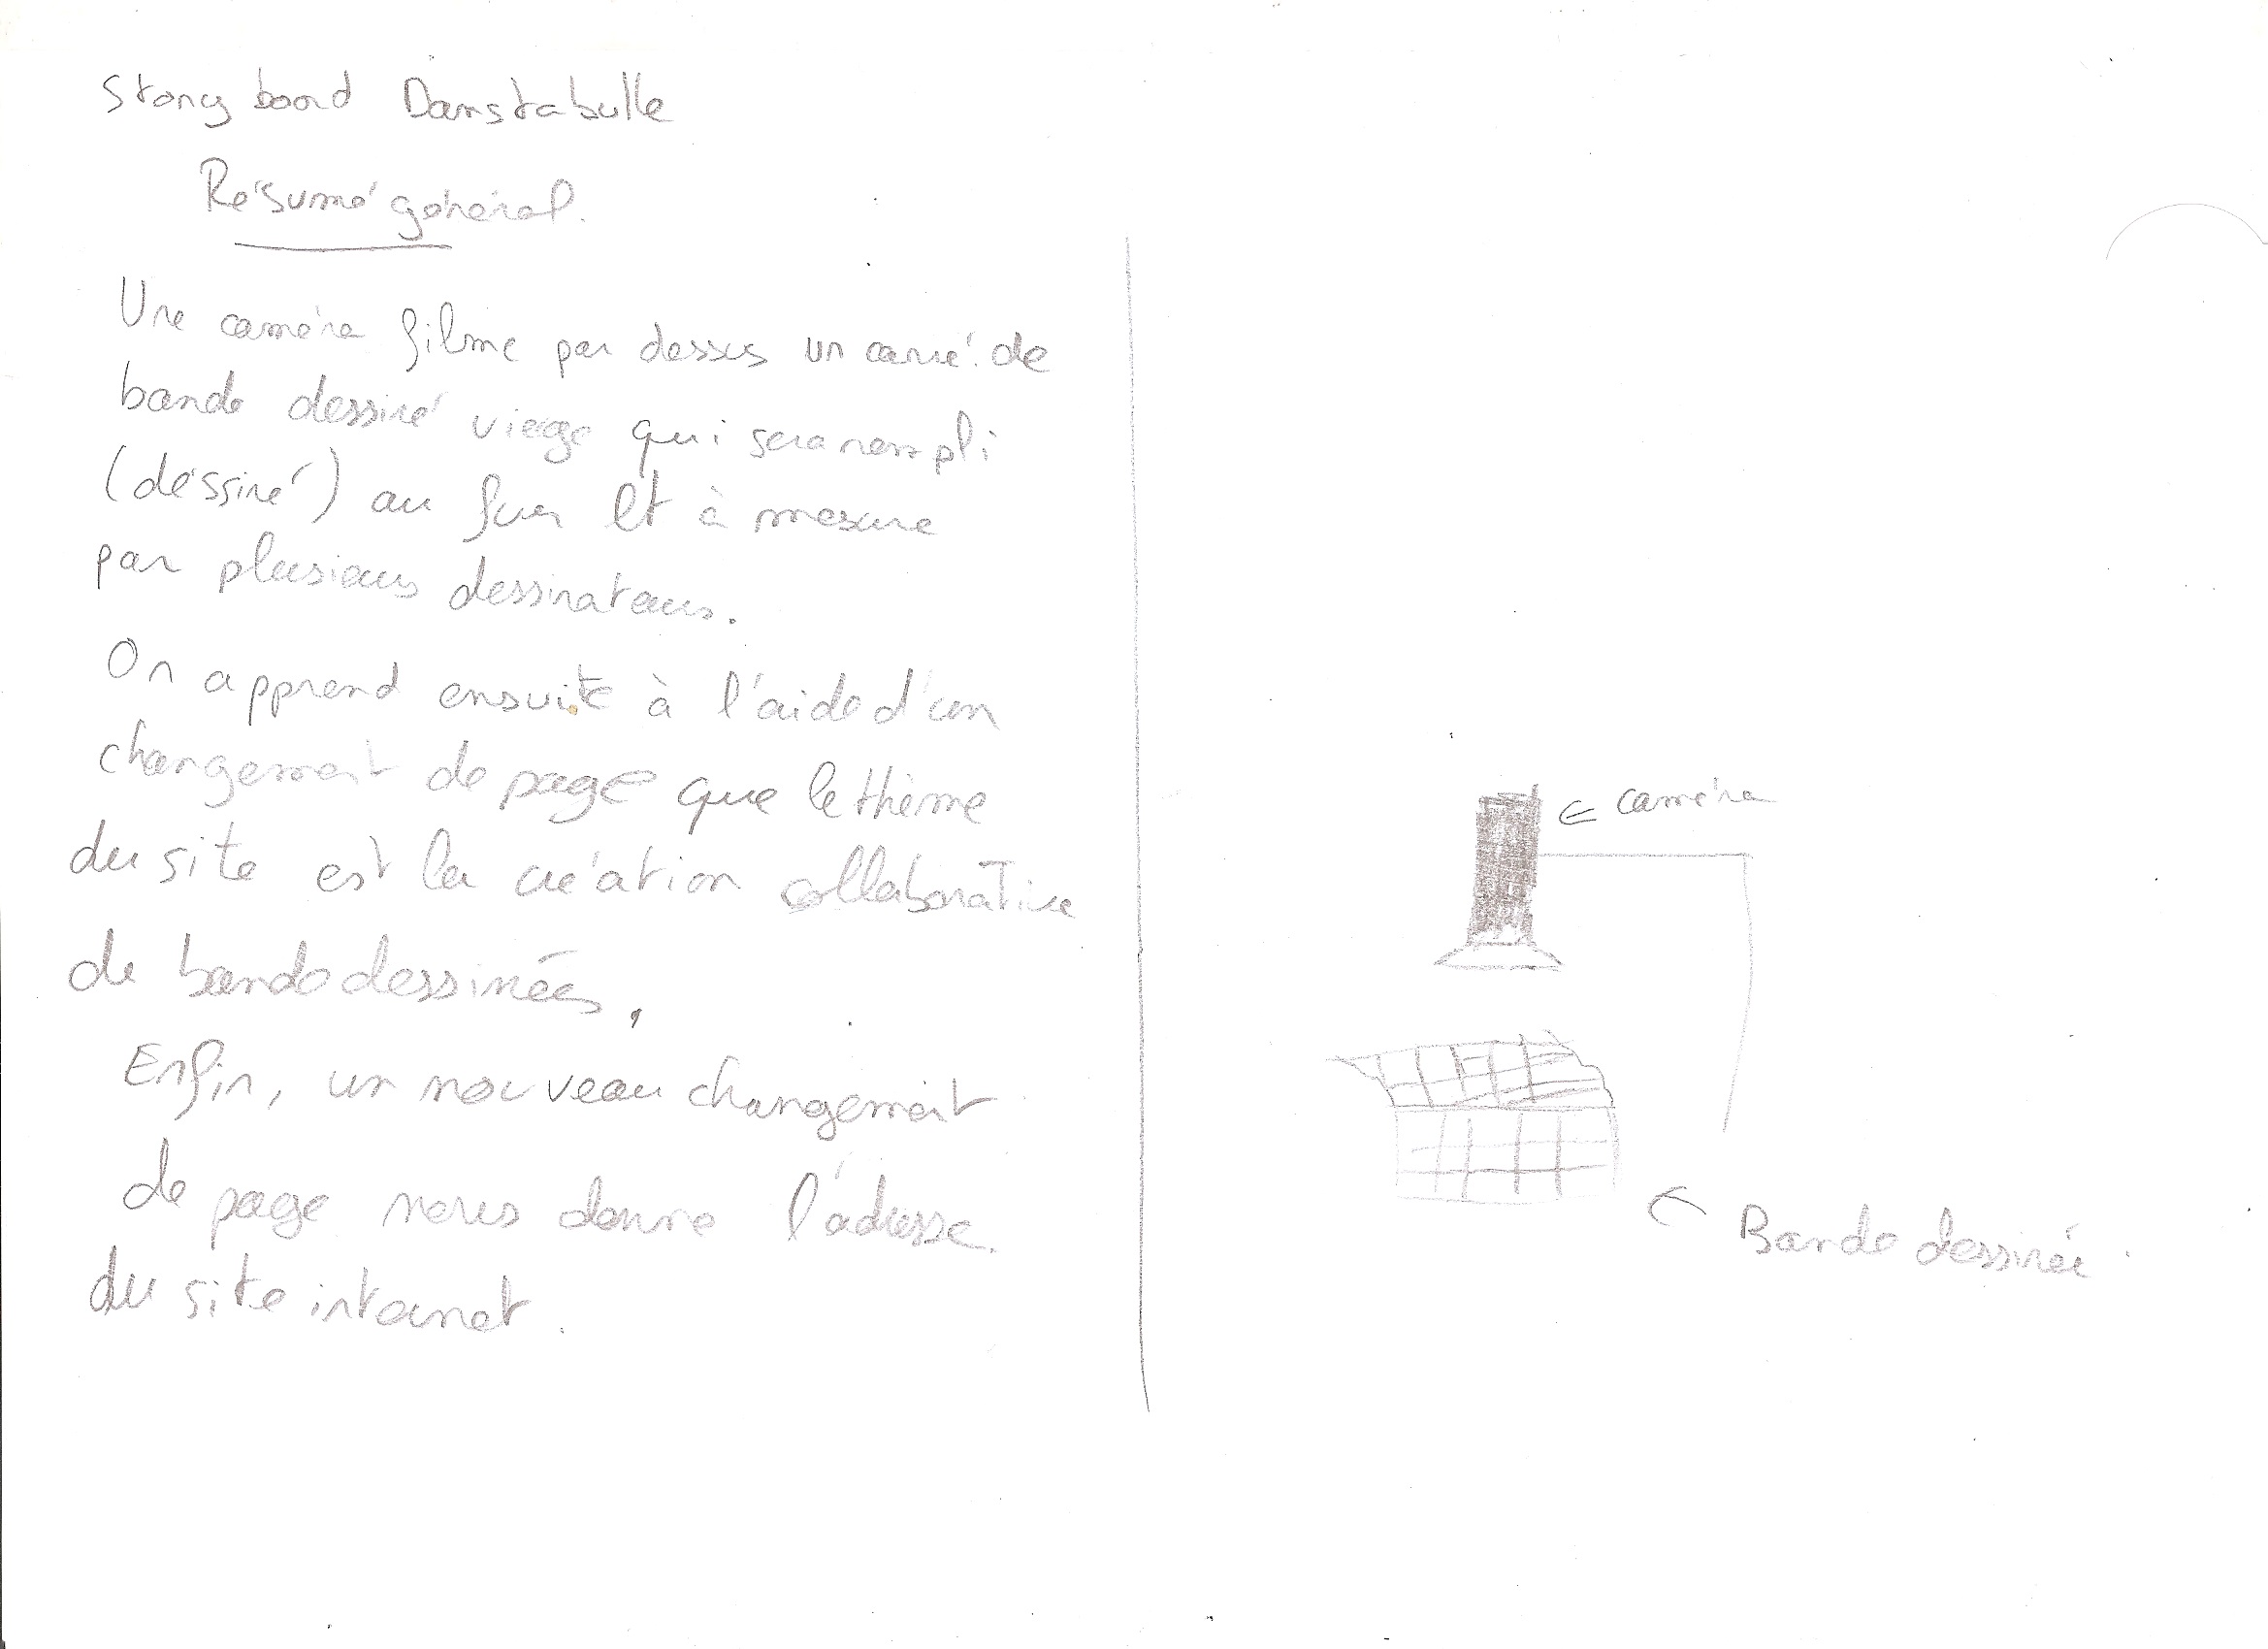 Story board Danstabulle
Résumé général.
Une caméra filme par dessus un carré de
bande dessiné vierge qui sera rempli
(déssiné) au fur et à mesure
par plusieurs dessinateurs.
On apprend ensuite à l'aide d'un
changement de page que le thème
du site est la création collaborative
de bande dessinées.
Enfin, un nouveau changement
de page nous donne l'adresse
du site internet.
caméra
Bande dessinée.